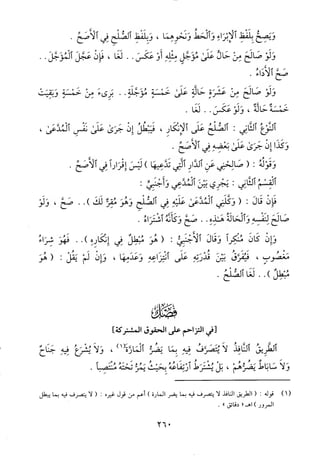 وَيَصِحُّ بِلَفْظِ الْإِبْرَاءِ وَالْحَطِّ وَنَحْوِهِمَا ، وَبِلَفْظِ الصُّلْحِ فِي الْأَصَحِّ .
وَلَوْ صَالَحَ مِنْ حَالٍّ عَلَىٰ مُؤَجَّلٍ مِثْلِهِ أَوْ عَكَسَ.. لَغَا ، فَإِنْ عَجَّلَ الْمُؤَجَّلَ..
صَحَّ الْأَدَاءُ .
وَلَوْ صَالَحَ مِنْ عَشَرَةٍ حَالَّةٍ عَلَىٰ خَمْسَةٍ مُؤَجَّلَةٍ.. بَرِىءَ مِنْ خَمْسَةٍ وَبَقِيَتْ
خَمْسَةٌ حَالَّةٌ ، وَلَوْ عَكَسَ.. لَغَا .
النَّوْعُ الثَّانِي : الصُّلْحُ عَلَى الْإِنْكَارِ ، فَيَبْطُلُ إِنْ جَرَىٰ عَلَىٰ نَفْسِ الْمُدَّعَىٰ ،
وَكَذَا إِنْ جَرَىٰ عَلَىٰ بَعْضِهِ فِي الْأَصَحِّ .
وَقَوْلُهُ : ( صَالِحْنِي عَنِ الدَّارِ الَّتِي تَدَّعِيهَا ) لَيْسَ إِقْرَاراً فِي الْأَصَحِّ .
الْقِسْمُ الثَّانِي : يَجْرِي بَيْنَ الْمُدَّعِي وَأَجْنَبِيٍّ :
فَإِنْ قَالَ : ( وَكَّلَنِي الْمُدَّعَىٰ عَلَيْهِ فِي الصُّلْحِ وَهُوَ مُقِرٌّ لَكَ ).. صَحَّ ، وَلَوْ
صَالَحَ لِنَفْسِهِ وَالْحَالَةُ هَـٰذِهِ.. صَحَّ وَكَأَنَّهُ اشْتَرَاهُ .
وَإِنْ كَانَ مُنْكِراً وَقَالَ الْأَجْنَبِيُّ : ( هُوَ مُبْطِلٌ فِي إِنْكَارِهِ ).. فَهُوَ شِرَاءُ
مَغْصُوبٍ ، فَيُفَرَّقُ بَيْنَ قُدْرَتِهِ عَلَى انْتِزَاعِهِ وَعَدَمِهَا ، وَإِنْ لَمْ يَقُلْ : ( هُوَ
مُبْطِلٌ ).. لَغَا الصُّلْحُ .
فَصْلٌ
[في التزاحم على الحقوق المشتركة]
الطَّرِيقُ النَّافِذُ لَا يُتَصَرَّفُ فِيهِ بِمَا يَضُرُّ الْمَارَّةَ(١) ، وَلَا يُشْرَعُ فِيهِ جَنَاحٌ
وَلَا سَابَاطٌ يَضُرُّهُمْ ، بَلْ يُشْتَرَطُ ارْتِفَاعُهُ بِحَيْثُ يَمُرُّ تَحْتَهُ مُنْتَصِباً .
(١) قوله : ( الطريق النافذ لا يتصرف فيه بما يضر المارة ) أعم من قول غيره : ( لا يتصرف فيه بما يبطل
المرور ) اهـ « دقائق » .
٢٦٠